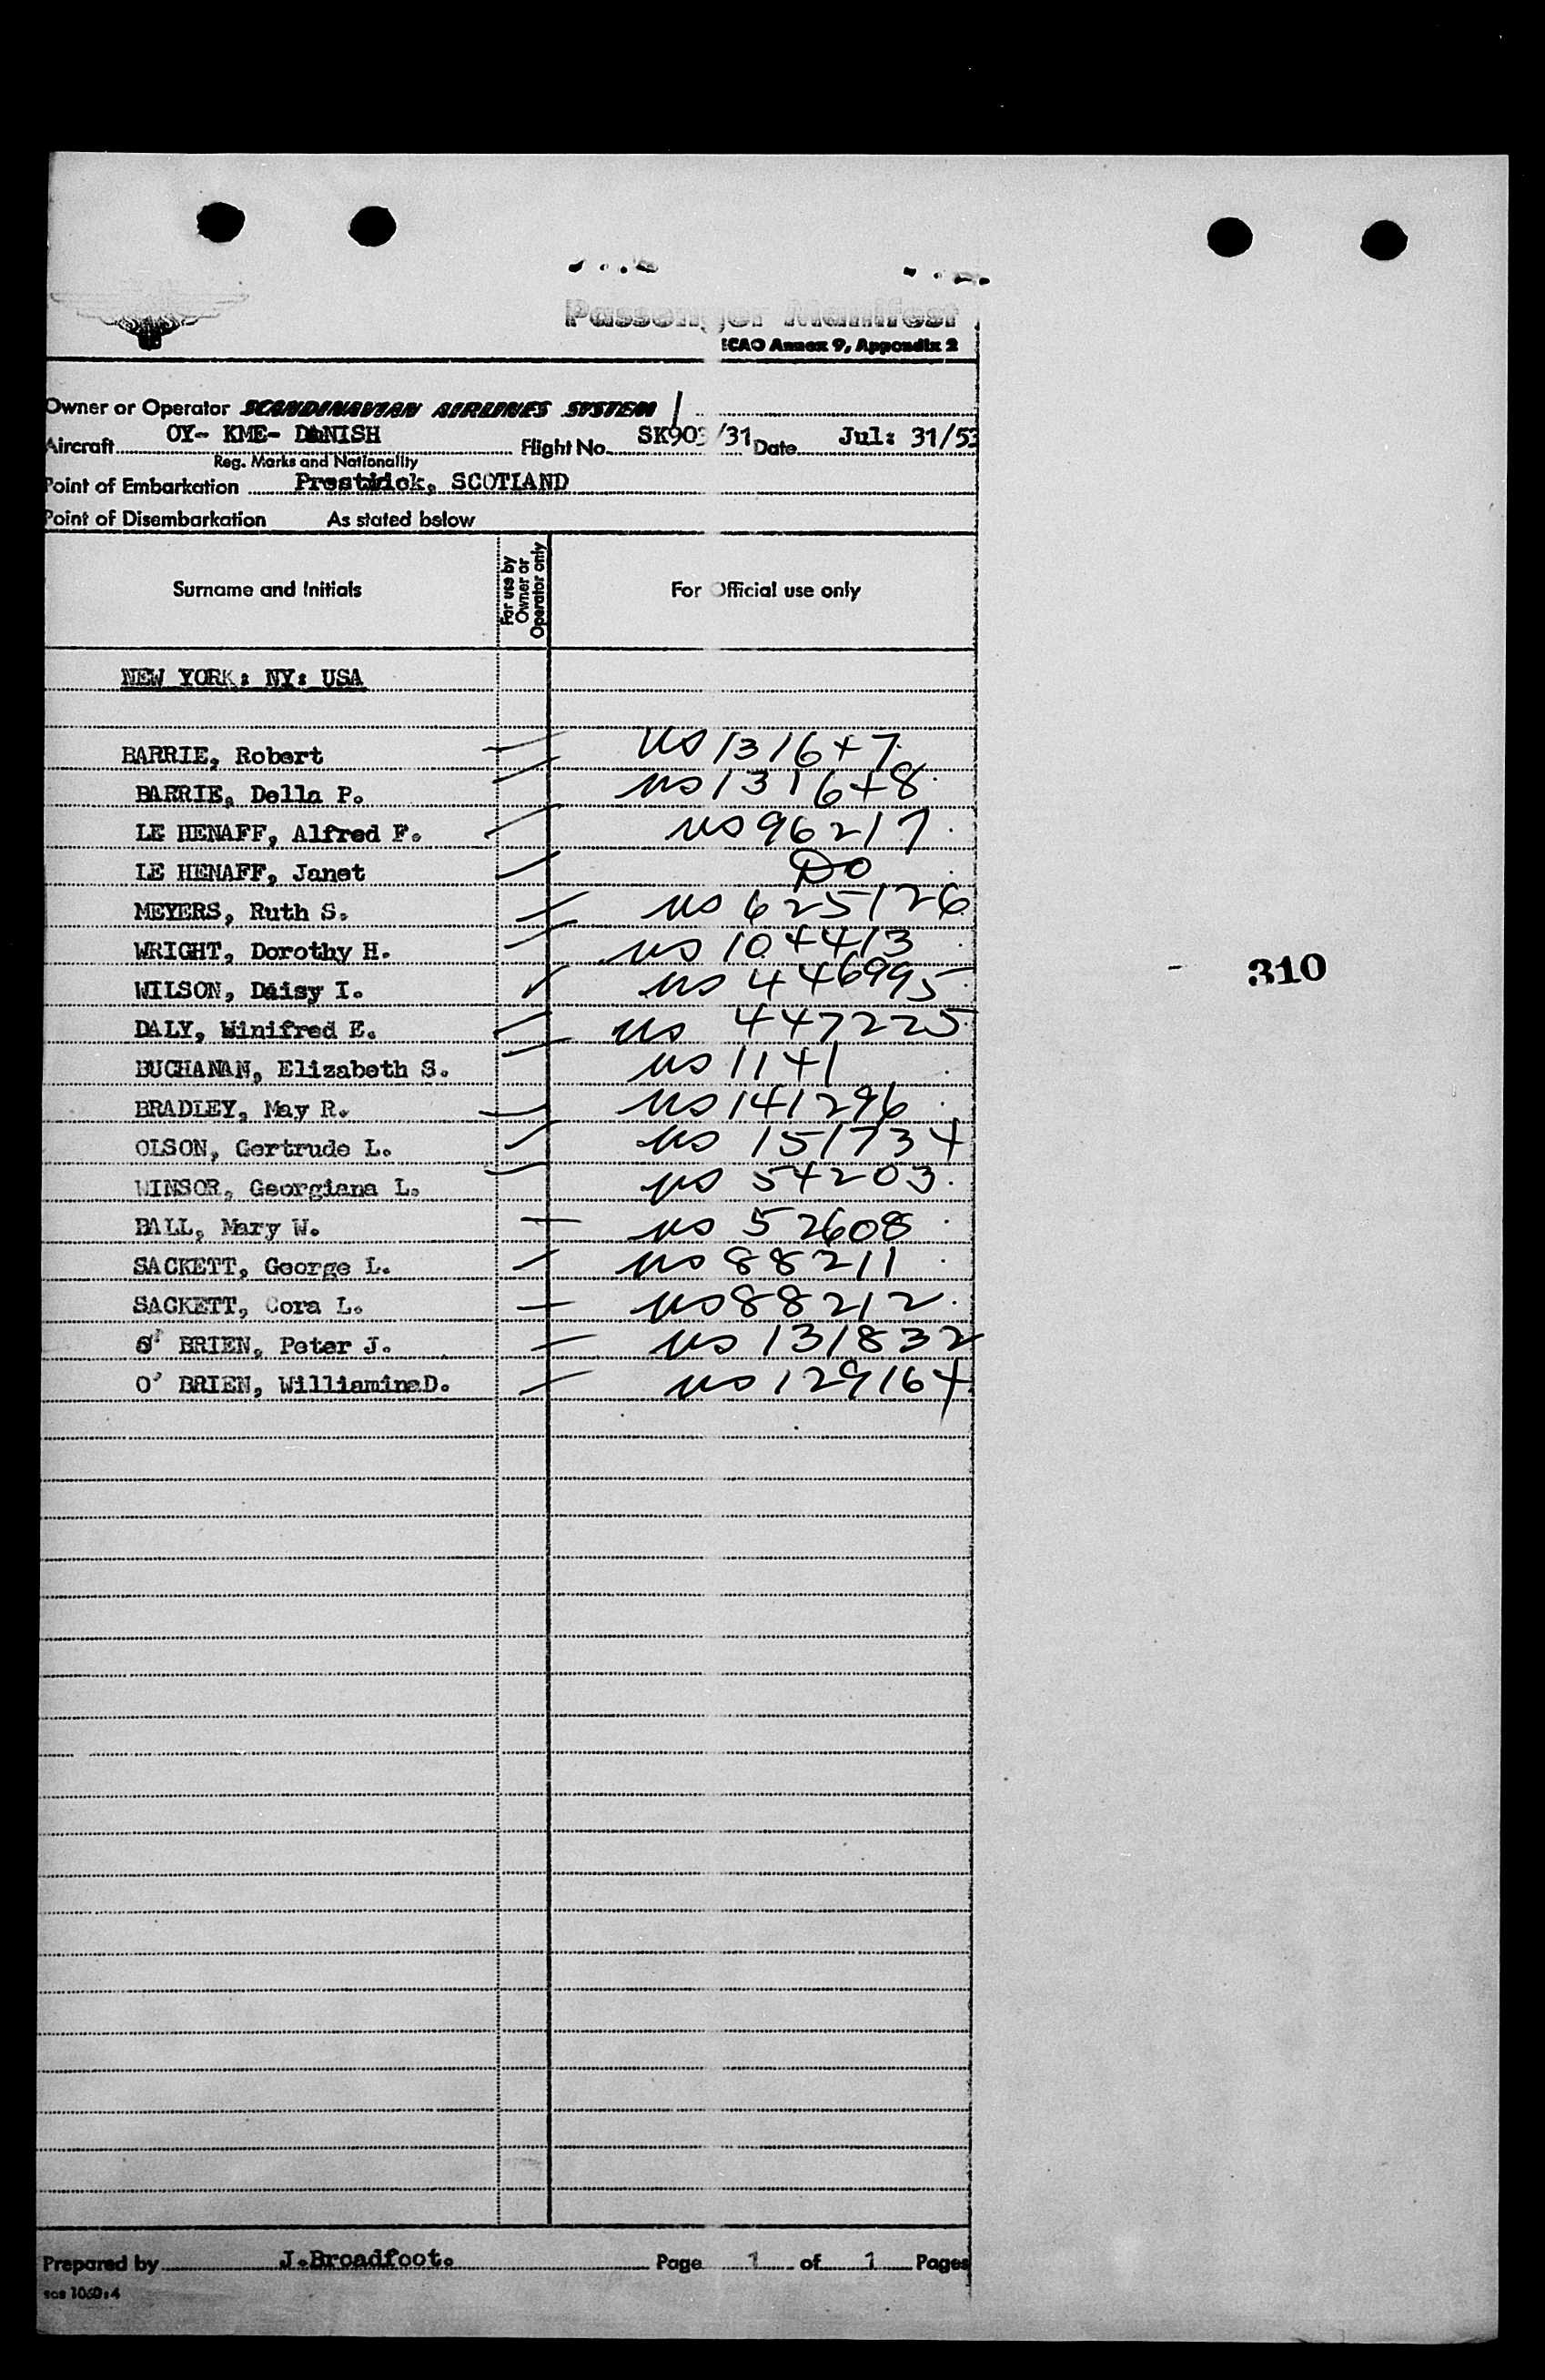 Passenger Manifest
ICAO Annex 9, Appendix 2
Owner or Operator SCANDINAVIAN AIRLINES SYSTEM
Aircraft OY- KME- DANISH Flight No. SK903/31 Date Jul: 31/53
Reg. Marks and Nationality
Point of Embarkation Prestwick, SCOTLAND
Point of Disembarkation As stated below
Surname and Initials For use by Owner or Operator only For Official use only
NEW YORK: NY: USA
BARRIE, Robert US 131647
BARRIE, Della P. US 131648
LE HENAFF, Alfred F. US 96217
LE HENAFF, Janet Do
MEYERS, Ruth S. US 625126
WRIGHT, Dorothy H. US 104413
310
WILSON, Daisy I. US 446995
DALY, Winifred E. US 447225
BUCHANAN, Elizabeth S. US 1141
BRADLEY, May R. US 141296
OLSON, Gertrude L. US 151734
WINSOR, Georgiana L. US 54203
BALL, Mary W. US 52608
SACKETT, George L. US 88211
SACKETT, Cora L. US 88212
O' BRIEN, Peter J. US 131832
O' BRIEN, WilliaminaD. US 129164
Prepared by J.Broadfoot. Page 1 of 1 Pages
sas 1060:4